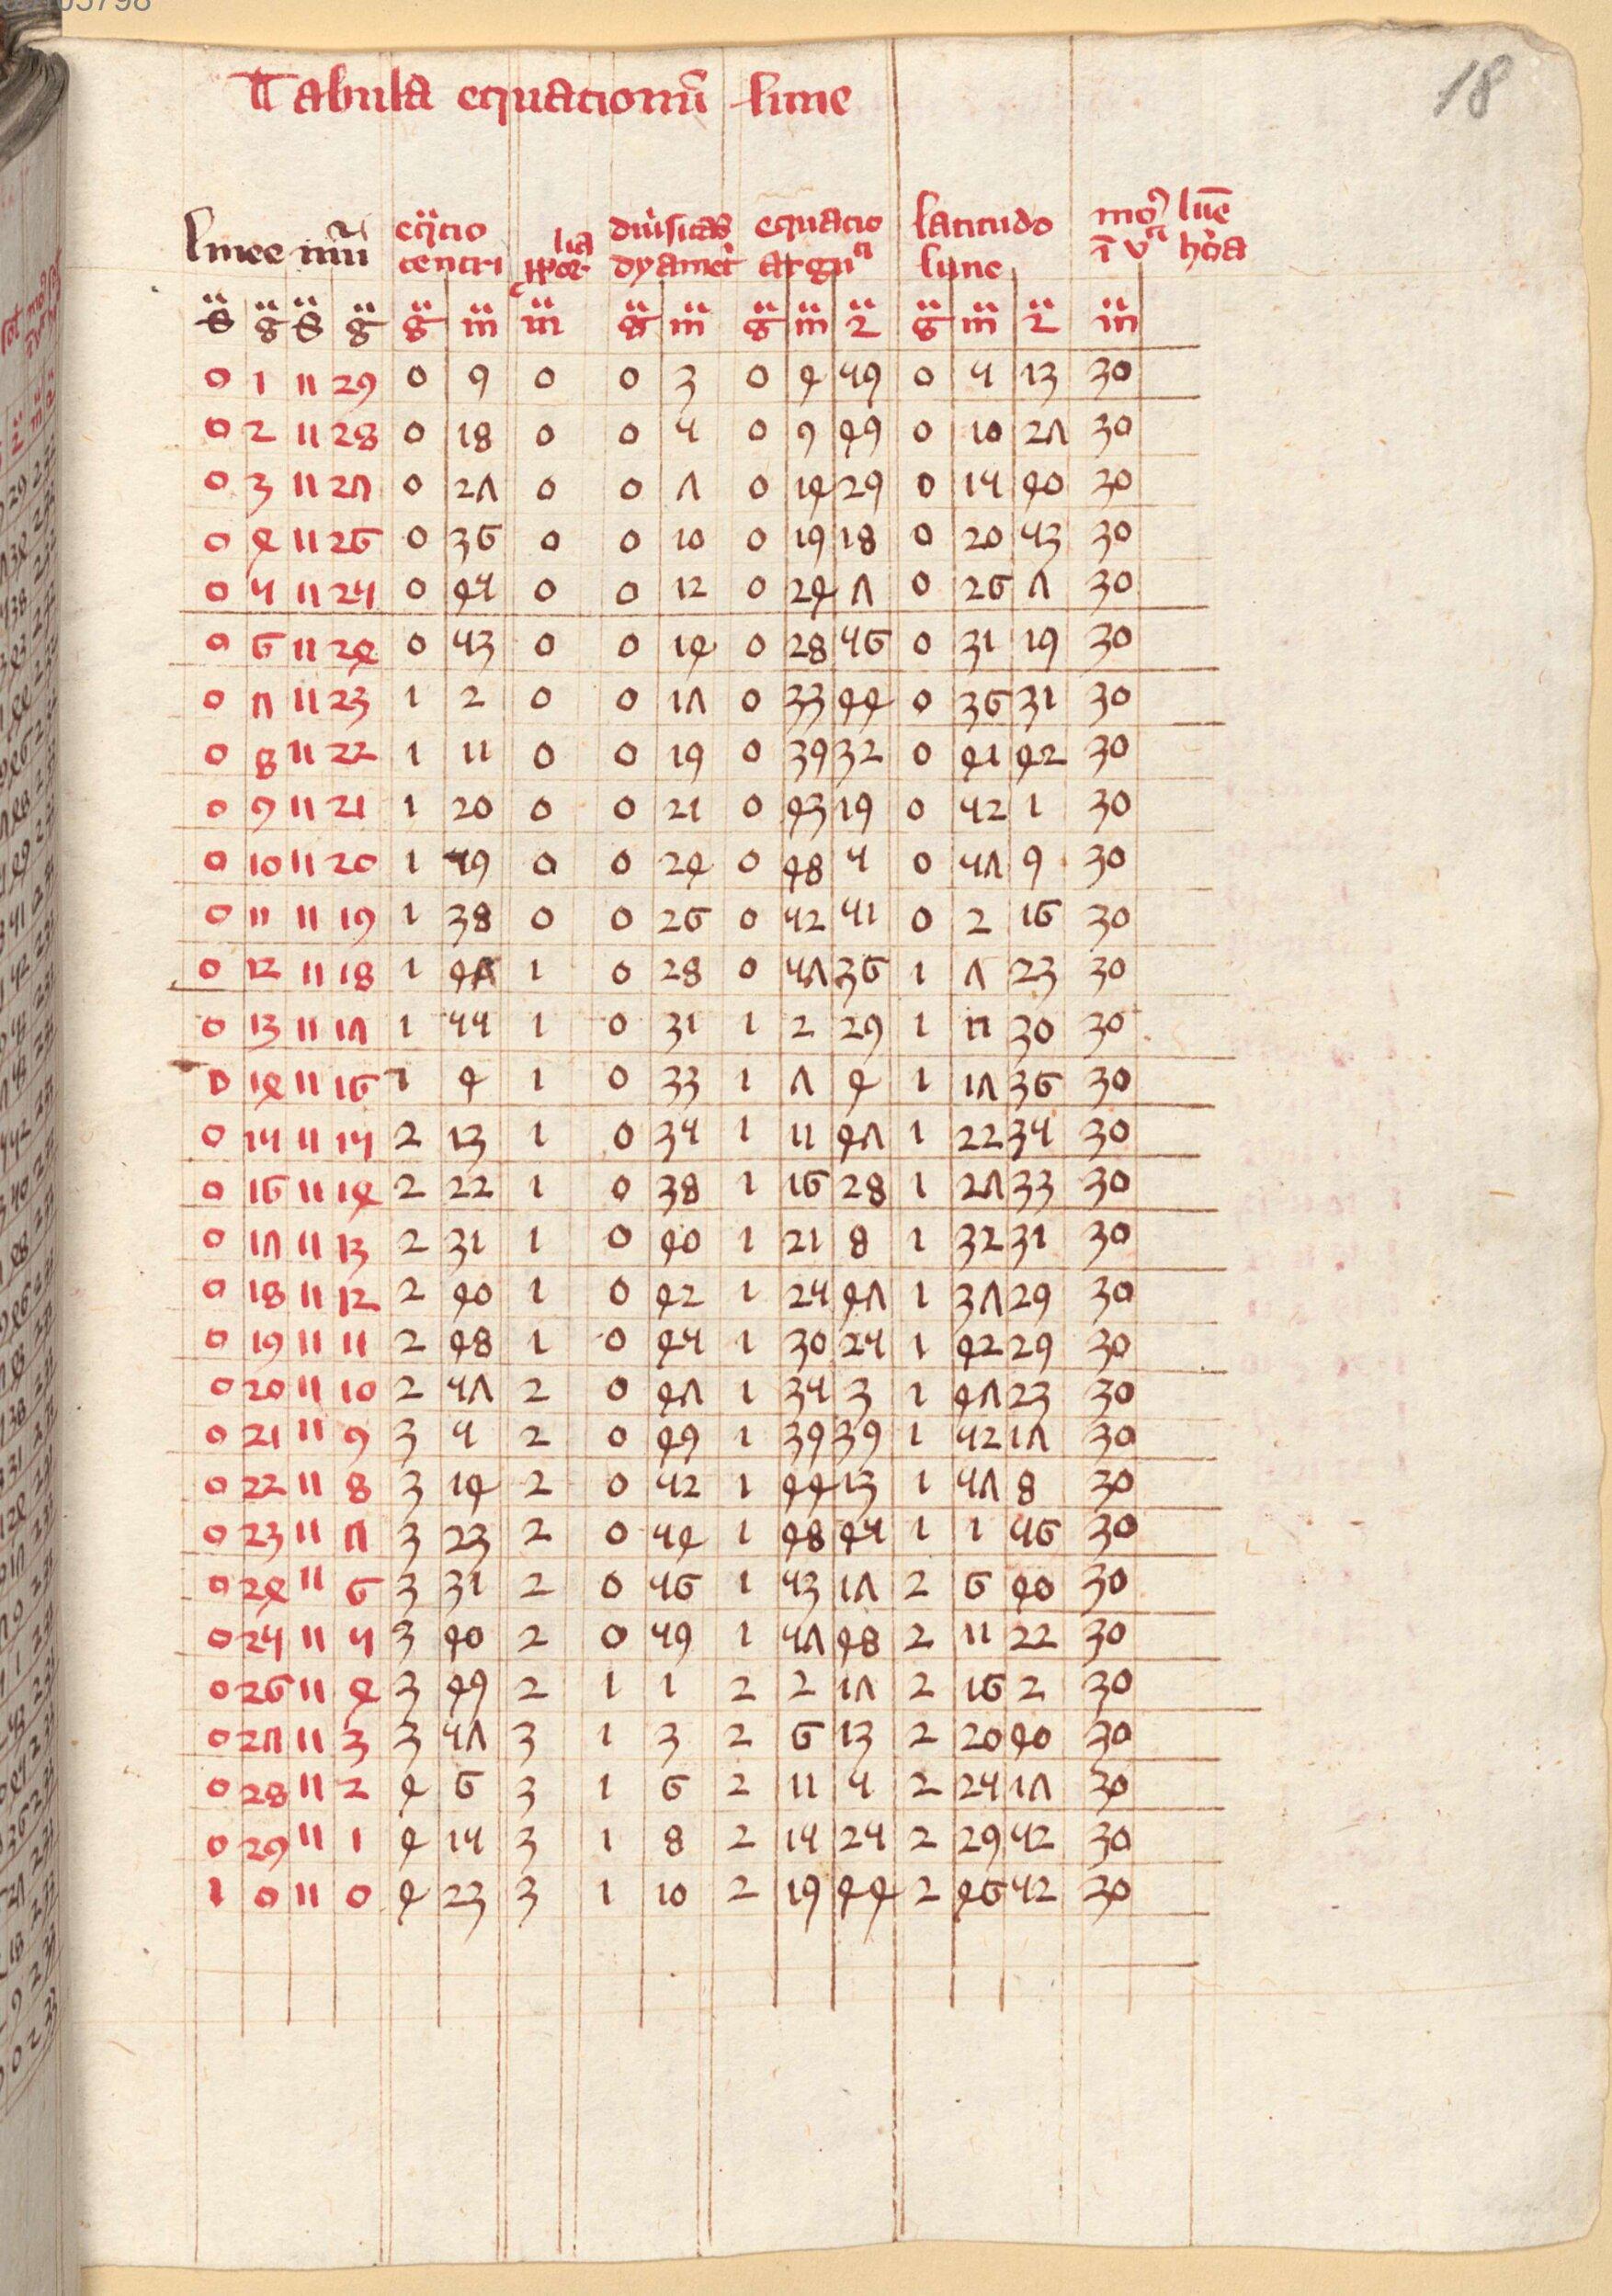 18
Tabula equacionū lune
linee nūi eq̈tio centri lia ꝓpor diu̾sitas dyamet̾ equacio argu̅ti latitudo lune mo9 lūe ī vᵃ hōa
s̈ g̈ s̈ g̈ g̈ m̈ m̈ g̈ m̈ g̈ m̈ 2̈ g̈ m̈ 2̈ m̈
0 1 11 29 0 9 0 0 3 0 4 59 0 5 13 30
0 2 11 28 0 18 0 0 5 0 9 49 0 10 27 30
0 3 11 27 0 27 0 0 7 0 14 29 0 15 40 30
0 4 11 26 0 36 0 0 10 0 19 18 0 20 53 30
0 5 11 25 0 45 0 0 12 0 24 7 0 26 7 30
0 6 11 24 0 53 0 0 14 0 28 56 0 31 19 30
0 7 11 23 1 2 0 0 17 0 33 44 0 36 31 30
0 8 11 22 1 11 0 0 19 0 39 32 0 41 42 30
0 9 11 21 1 20 0 0 21 0 43 19 0 52 1 30
0 10 11 20 1 59 0 0 24 0 48 5 0 57 9 30
0 11 11 19 1 38 0 0 26 0 52 51 0 2 16 30
0 12 11 18 1 47 1 0 28 0 57 36 1 7 23 30
0 13 11 17 1 55 1 0 31 1 2 29 1 11 30 30
0 14 11 16 1 4 1 0 33 1 7 4 1 17 36 30
0 15 11 15 2 13 1 0 35 1 11 47 1 22 35 30
0 16 11 14 2 22 1 0 38 1 16 28 1 27 33 30
0 17 11 13 2 31 1 0 40 1 21 8 1 32 31 30
0 18 11 12 2 40 1 0 42 1 25 47 1 37 29 30
0 19 11 11 2 48 1 0 45 1 30 25 1 42 29 30
0 20 11 10 2 57 2 0 47 1 35 3 1 47 23 30
0 21 11 9 3 5 2 0 49 1 39 39 1 52 17 30
0 22 11 8 3 14 2 0 52 1 44 13 1 57 8 30
0 23 11 7 3 23 2 0 54 1 48 45 1 1 56 30
0 24 11 6 3 31 2 0 56 1 53 17 2 6 40 30
0 25 11 5 3 40 2 0 59 1 57 48 2 11 22 30
0 26 11 4 3 49 2 1 1 2 2 17 2 16 2 30
0 27 11 3 3 57 3 1 3 2 6 13 2 20 40 30
0 28 11 2 4 6 3 1 6 2 11 5 2 25 17 30
0 29 11 1 4 15 3 1 8 2 15 25 2 29 52 30
1 0 11 0 4 23 3 1 10 2 19 44 2 46 52 30